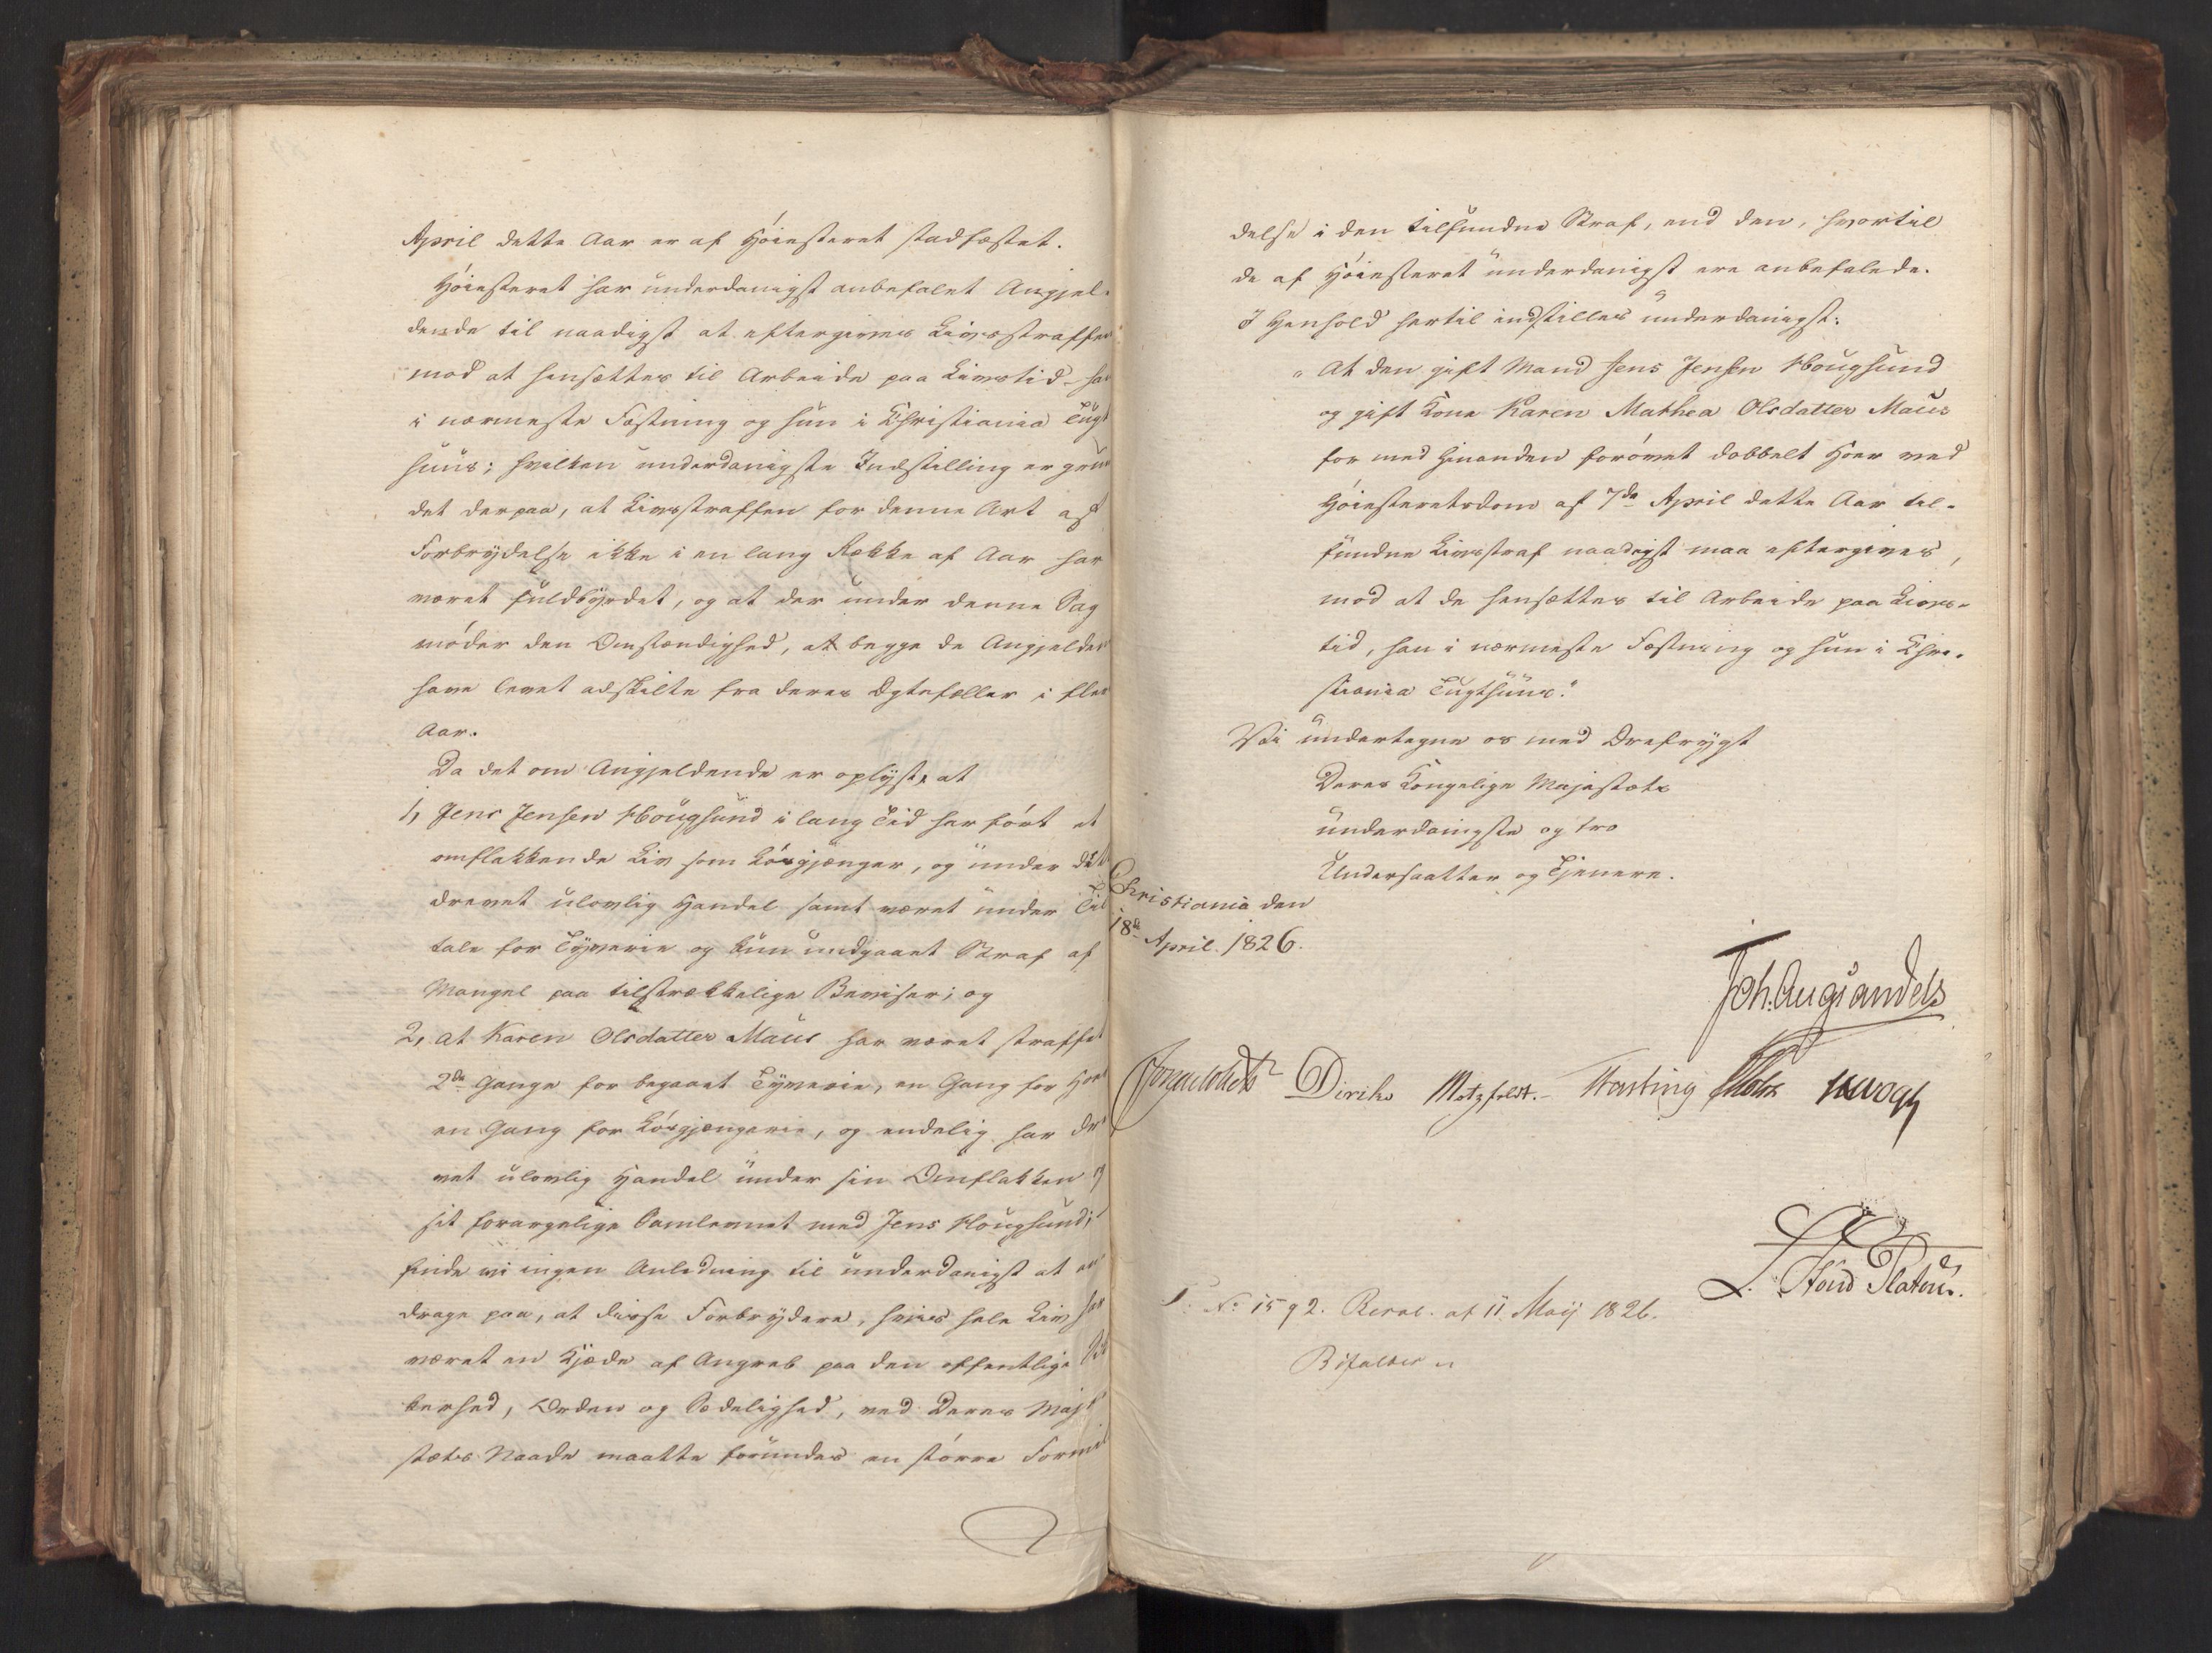 April dette Aar er af Höiesteret stadfæstet.
Höiesteret har underdanigst anbefalet Angjel-
dende til naadigst at eftergives Livsstraffen
mod at hensættes til Arbeide paa Livstid - han
i nærmeste Fæstning og hun i Christiania Tugt
huus; hvilken underdanigste Indstilling er grun
det derpaa, at Livsstraffen for denne Art af
Forbrydelse ikke i en lang Række af Aar har
været fuldbyrdet, og at der under denne Sag
möder den Omstændighed, at begge de Angjelden
have levet adskilte fra deres Ægtefæller i flere
Aar.
Da det om Angjeldende er oplyst, at
1, Jens Jensen Hougsund i lang Tid har fört et
omflakkende Liv som Lösgjænger, og under dette
drevet ulovlig Handel samt været under Til
tale for Tyverie og kun undgaaet Straf af
Mangel paa tilstrækkelige Beviser; og
2, at Karen Olsdatter Maus har været straffet
2de Gange for begaaet Tyverie, en Gang for Hor
en Gang for Lösgjængerie, og endelig har dre
vet ulovlig Handel under sin Omflakken og
sit forargelige Samlevnet med Jens Hougsund;
finde vi ingen Anledning til underdanigst at an
drage paa, at disse Forbrydere, hvis hele Liv har
været en Kjæde af Angreb paa den offentlige Sik
kerhed, Orden og Sædelighed, ved Deres Maje
stæts Naade maatte forundes en större Formil
delse i den tilfundne Straf, end den, hvortil
de af Höiesteret underdanigst ere anbefalede.
I Henhold hertil indstilles underdanigst:
"At den gift Mand Jens Jensen Hougsund
og gift Kone Karen Mathea Olsdatter Maus
for med hinanden forövet dobbelt Hoer ved
Höiesteretsdom af 7de April dette Aar til-
fundne Livsstraf naadigst maa eftergives,
mod at de hensættes til Arbeide paa Livs-
tid, han i nærmeste Fæstning og hun i Chri-
stiania Tugthuus."
Vi undertegne os med Ærefrygt
Deres Kongelige Majestæts
underdanigste og tro
Undersaatter og Tjenere.
Christiania den
18de April 1826.
Joh. Aug. Sandels
Diriks Motzfeldt. Fasting Holst
L. Stoud Platou.
No 1592. Resol. af 11 Maij 1826.
Bifaldes